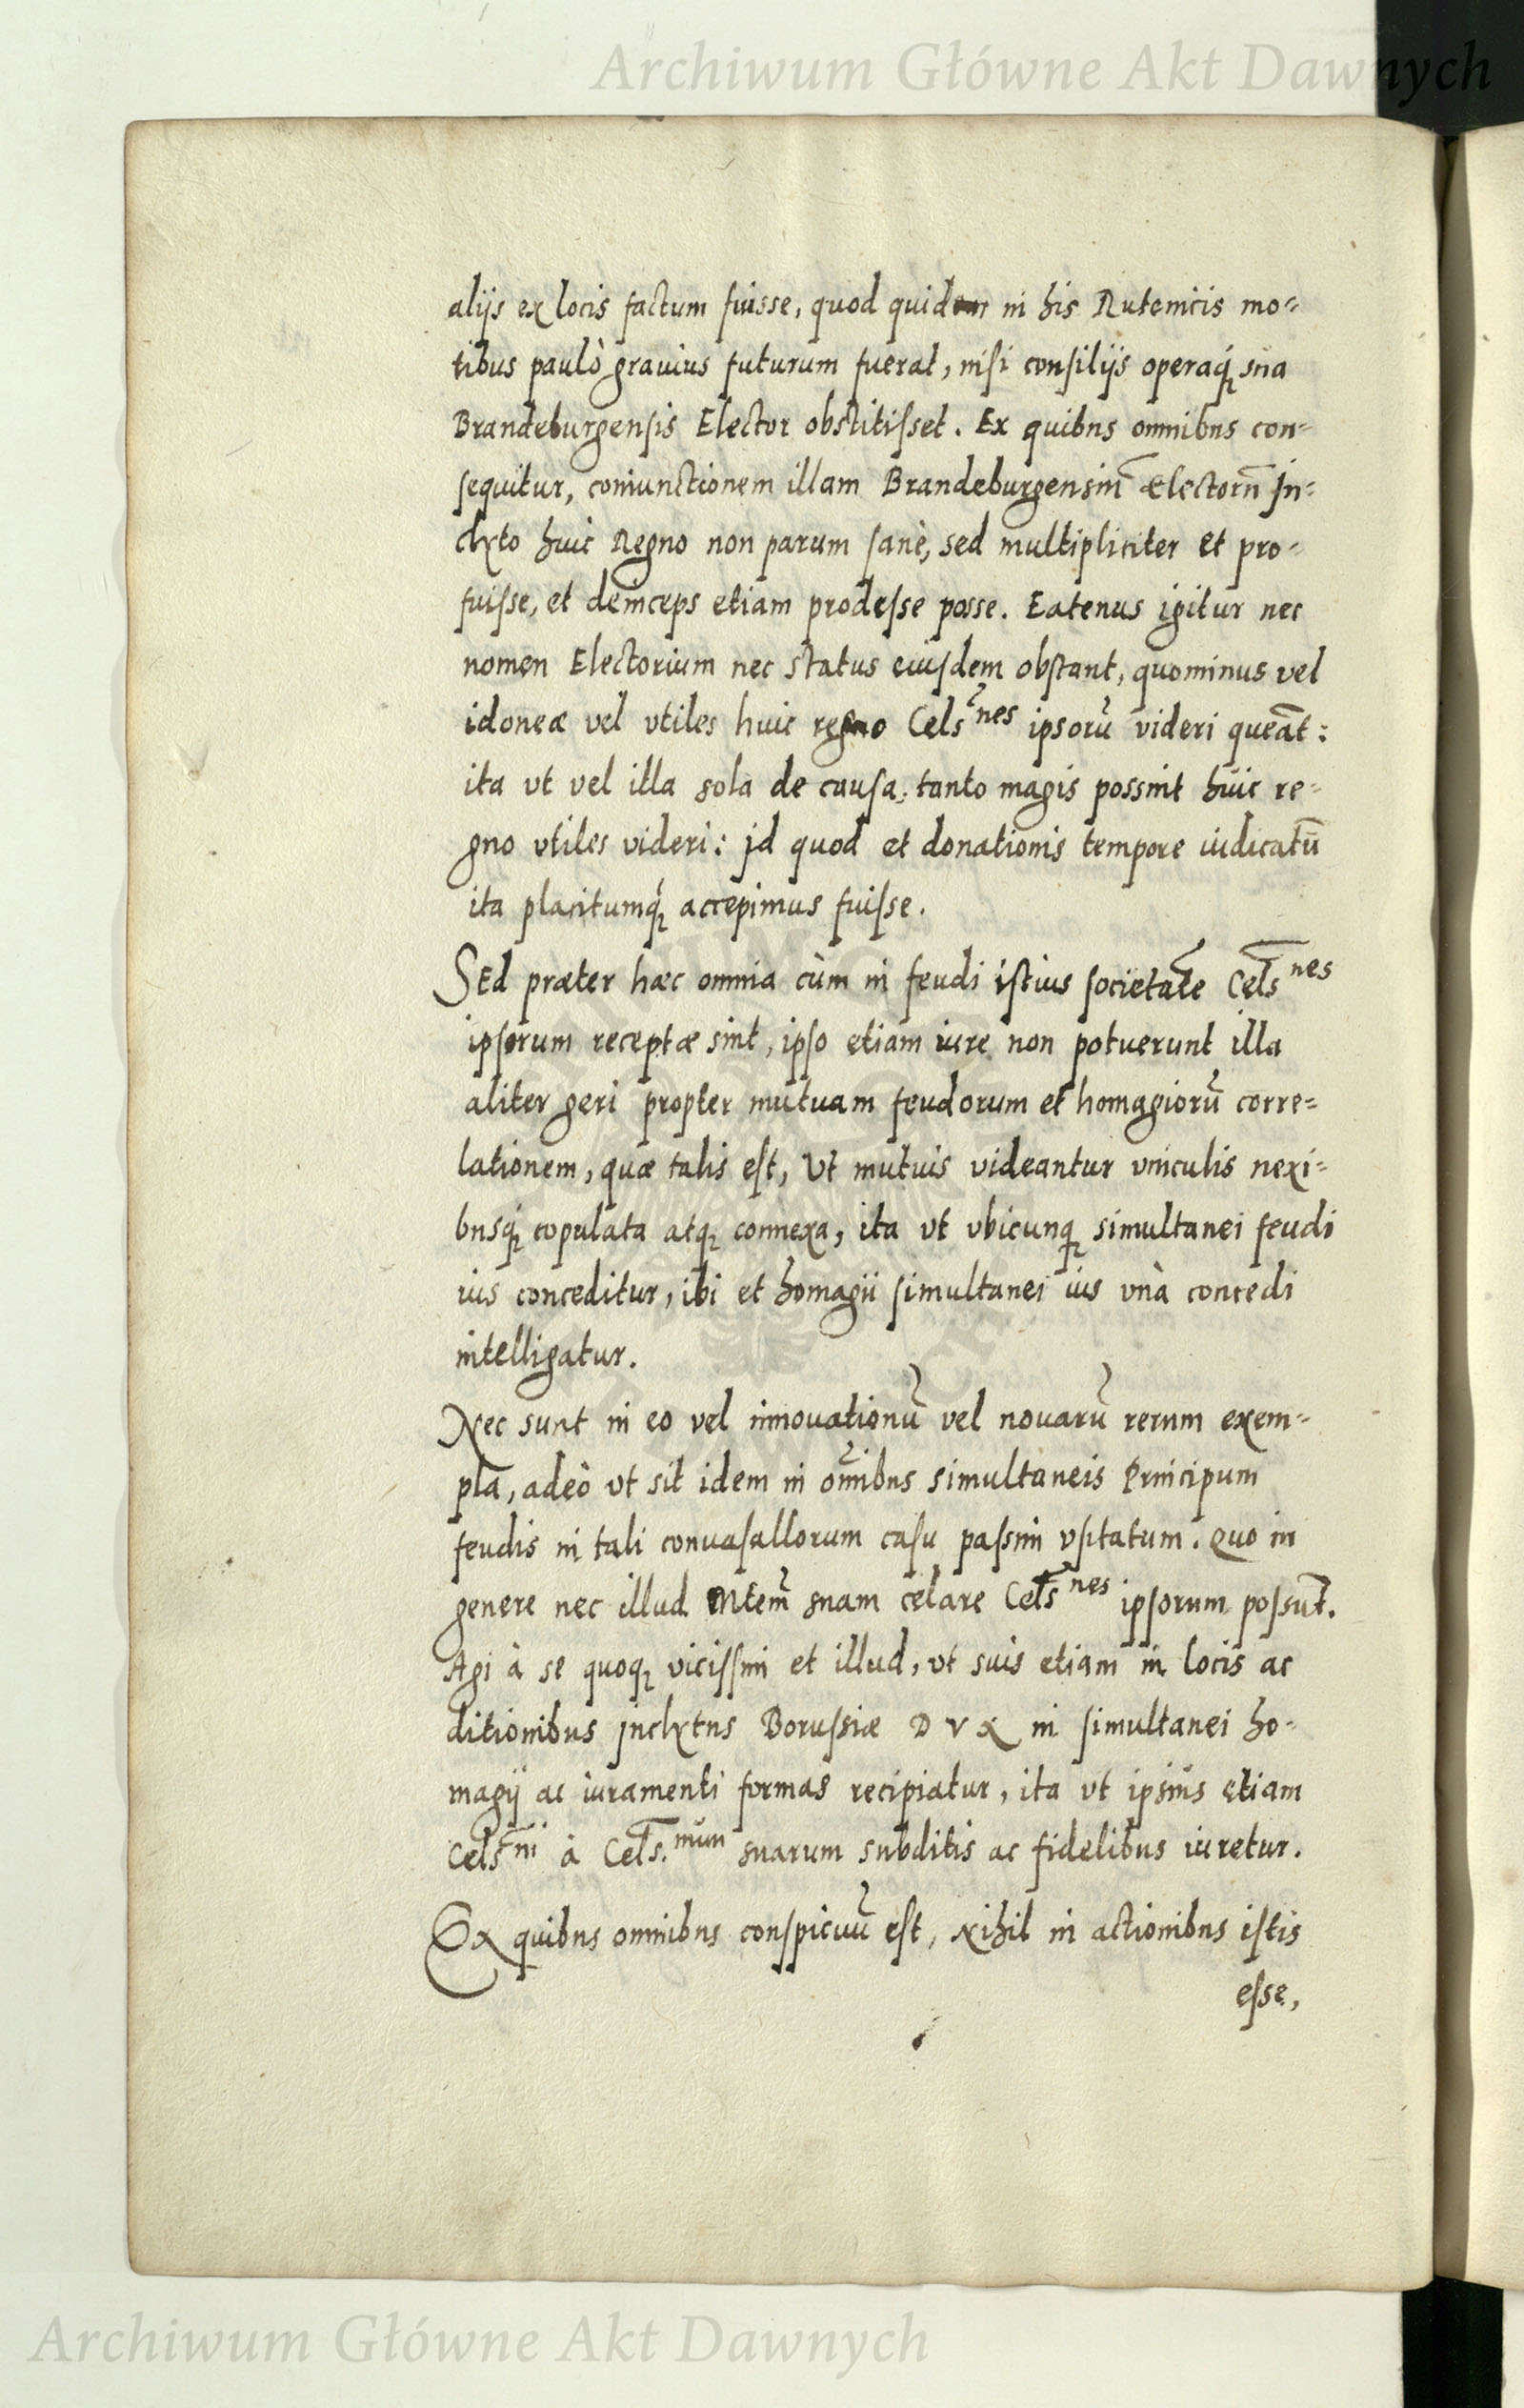 Archiwum Główne Akt Dawnych
alijs ex locis factum fuisse, quod quidem in his Rutenicis mo=
tibus paulò grauius futurum fuerat, nisi consilijs operaq́ꝫ sua
Brandeburgensis Elector obstitisset. Ex quibus omnibus con=
sequitur, coniunctionem illam Brandeburgensiũ Electorũ In=
clyto huic Regno non parum sanè, sed multipliciter et pro=
fuisse, et deinceps etiam prodesse posse. Eatenus igitur nec
nomen Electorium nec status eiusdem obstant, quominus vel
idoneæ vel vtiles huic regno Cels̃nes ipsorũ videri queãt:
ita vt vel illa sola de causa, tanto magis possint huic re=
gno vtiles videri: Id quod et donationis tempore iudicatũ
ita placitumq́ꝫ accepimus fuisse.
Sed præter hæc omnia cùm in feudi istius societatẽ Cels̃nes
ipsorum receptæ sint, ipso etiam iure non potuerunt illa
aliter geri propter mutuam feudorum et homagiorũ corre=
lationem, quæ talis est, Vt mutuis videantur vinculis nexi=
busq́ꝫ copulata atqꝫ connexa, ita vt vbicunqꝫ simultanei feudi
ius conceditur, ibi et homagii simultanei ius vnà concedi
intelligatur.
Nec sunt in eo vel innouationũ vel nouarũ rerum exem=
pla, adeò vt sit idem in om̃ibus simultaneis Principum
feudis in tali conuasallorum casu passim vsitatum. Quo in
genere nec illud Mtem̃ suam celare Cels̃nes ipsorum possũt.
Agi à se quoqꝫ vicissim et illud, vt suis etiam in locis ac
ditionibus Inclytus Borussiæ DVX in simultanei ho=
magij ac iuramenti formas recipiatur, ita vt ipsius etiam
Cels̃ni à Cels̃.nũm suarum subditis ac fidelibus iuretur.
Ex quibus omnibus conspicuũ est, Nihil in actionibus istis
esse,
Archiwum Główne Akt Dawnych